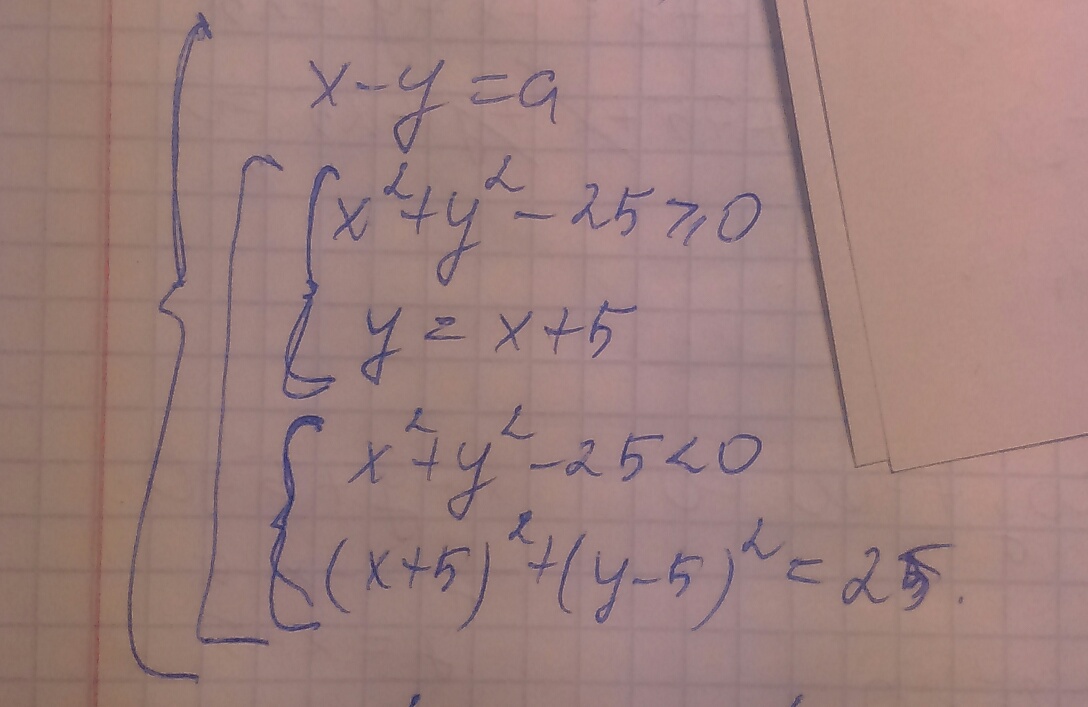 x-y=a
x²+y²-25⩾0
y=x+5
x²+y²-25<0
(x+5)²+(y-5)²=25.